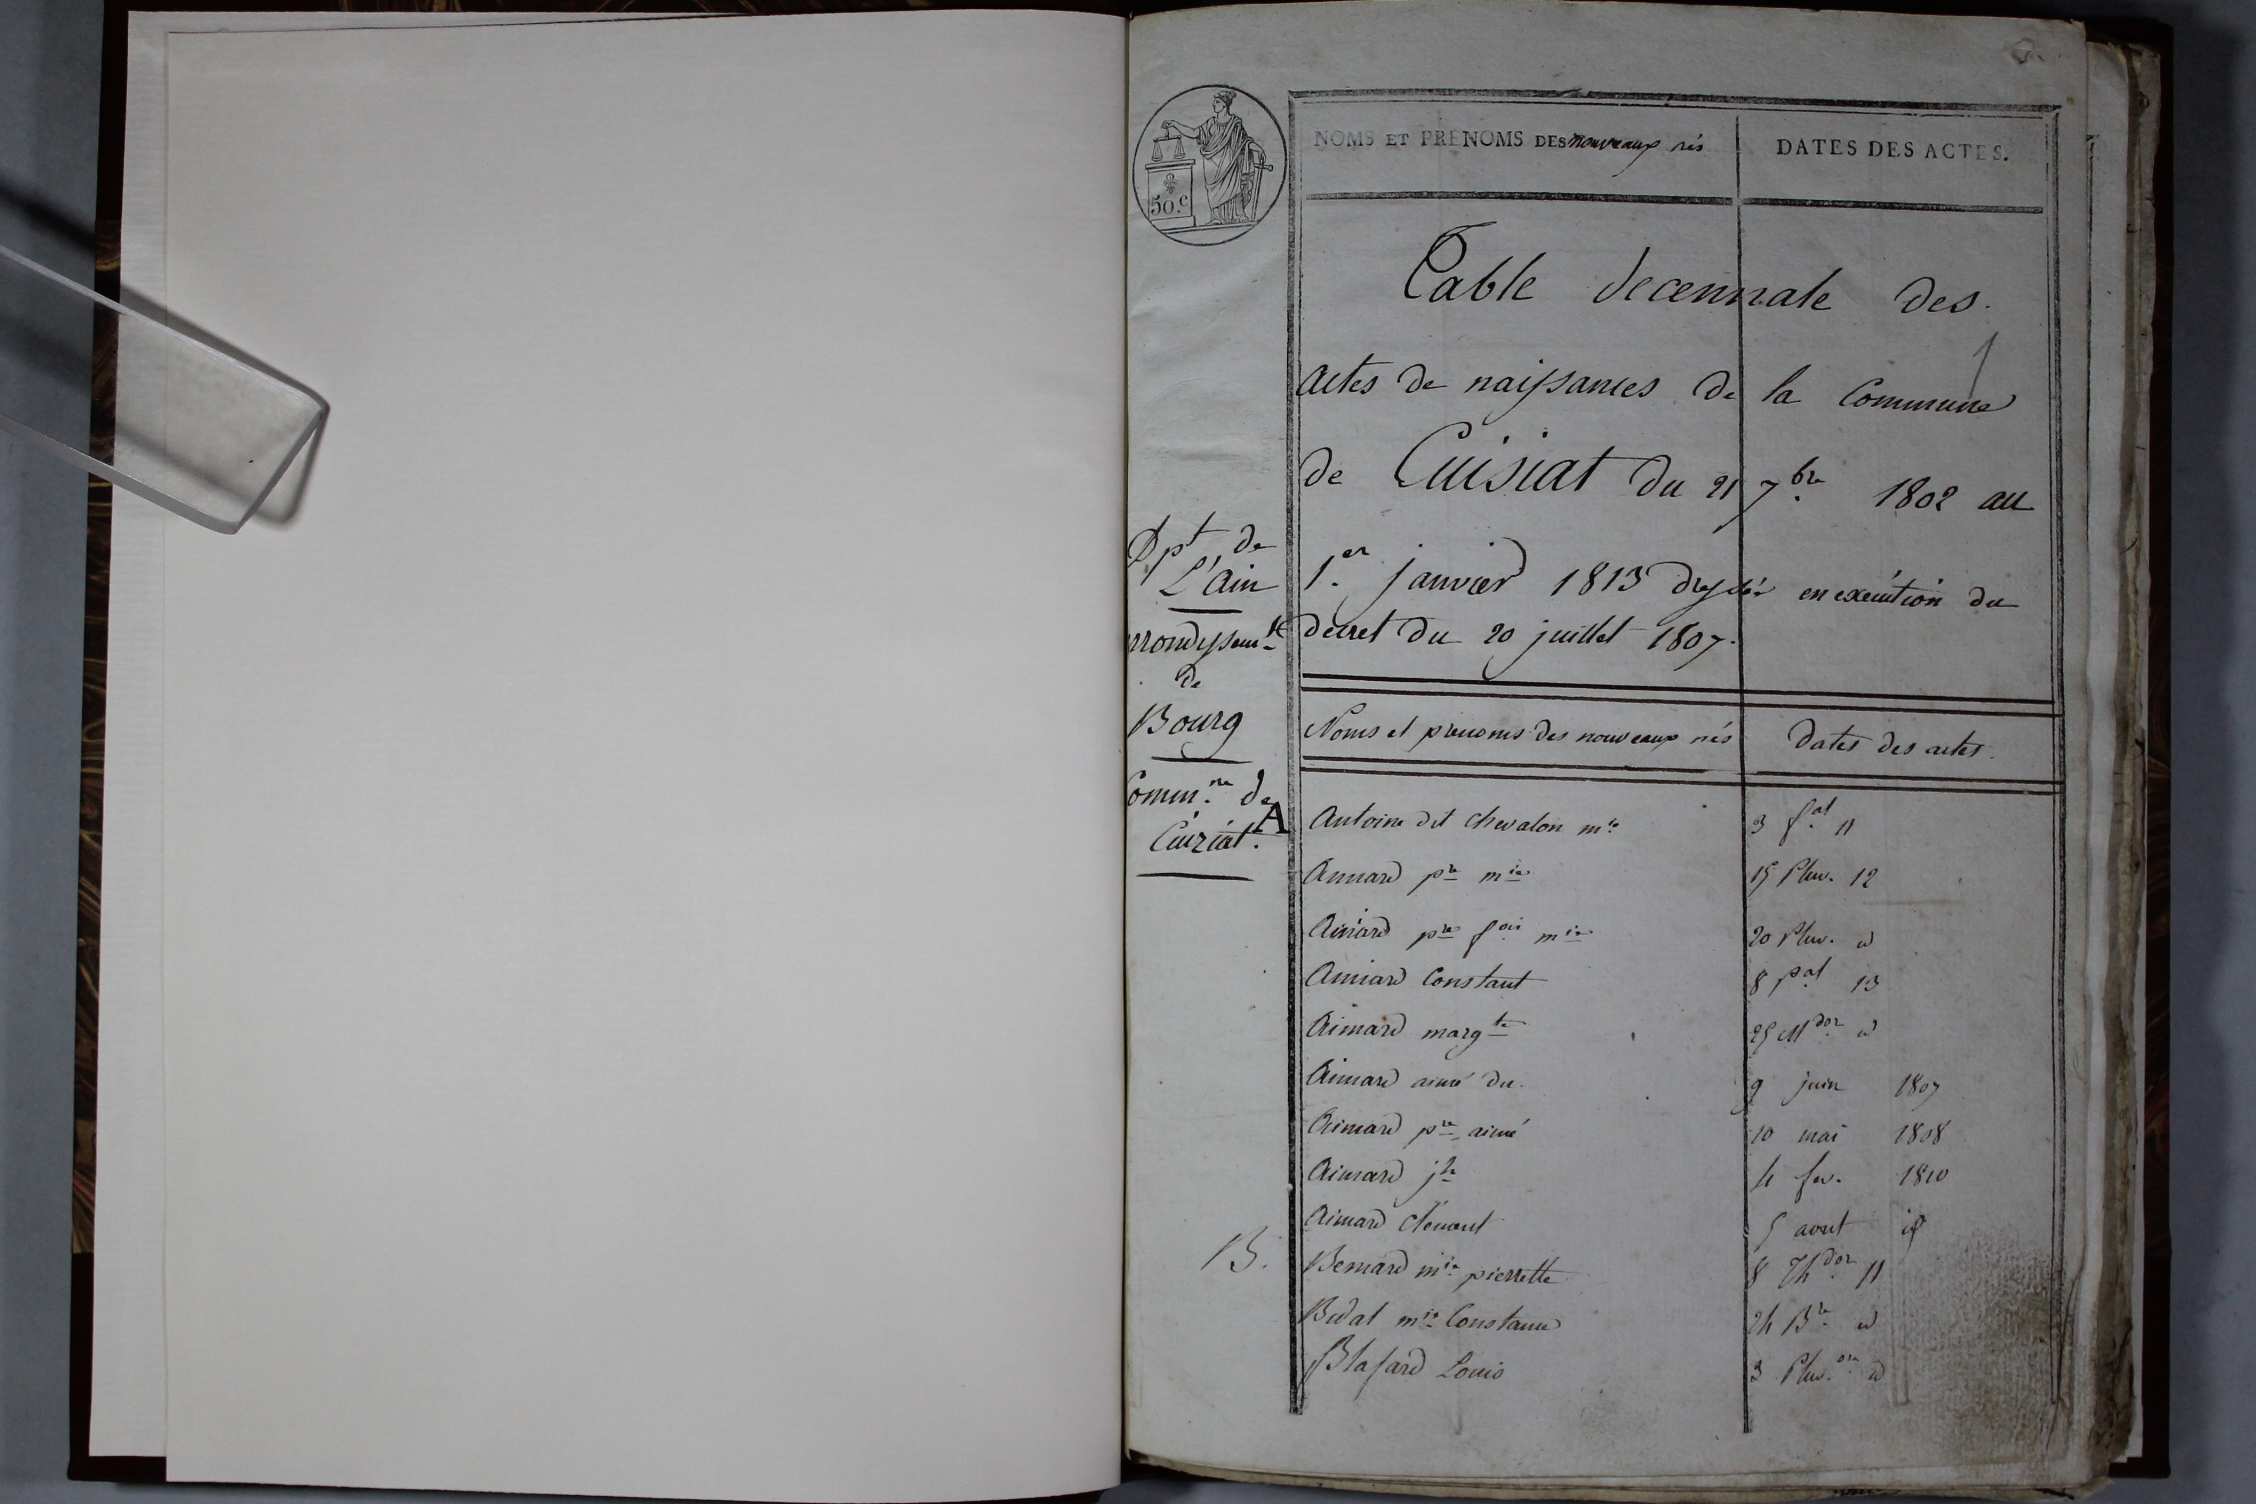 50.c
NOMS ET PRENOMS DES nouveaux nés
DATES DES ACTES.
Table decennale des
actes de naissances de la Commune
1
de Cuisiat du 21 7bre 1802 au
1.er janvier 1813 dressée en exécution du
decret du 20 juillet 1807.
Dpt de
L'ain
rrondissemt
de
Bourg
Comm.ne de
Cuiziat.
Noms et prenoms des nouveaux nés
Dates des actes.
A
Antoine dit Chevalon mie
3 f.al 11
Aimard pre mie
15 Pluv. 12
Aimard pre fois mie
20 Pluv. id
Aimard Constant
8 p.al 13
Aimard margte
25 Mdor id
Aimard aimé du.
9 juin 1807
Aimard pre aimé
10 mai 1808
Aimard jh
4 fev. 1810
Aimard Clément
5 aout id
B.
Bernard mie pierrette
8 Thdor 11
Bidal mie Constance
24 Bre id
Blafard Louis
3 Pluv.ose id